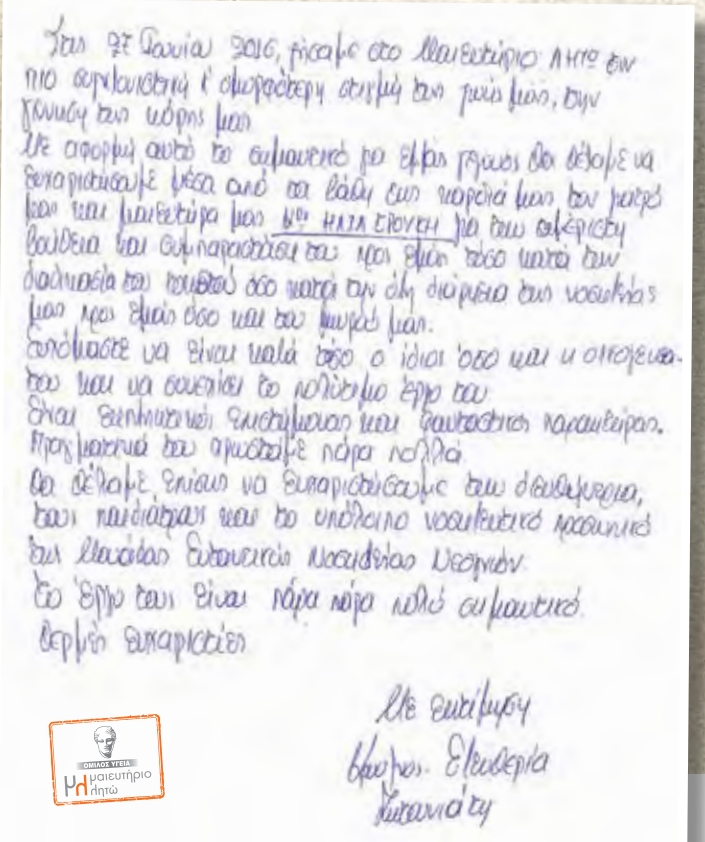 Στις 27 Ιουνίου 2016, ζήσαμε στο Μαιευτήριο ΛΗΤΩ την
πιο συγκινητική κ' ομορφότερη στιγμή της ζωής μας, την
γέννηση της κόρης μας
Με αφορμή αυτό το σημαντικό για εμάς γεγονός θα θέλαμε να
ευχαριστήσουμε μέσα από τα βάθη της καρδιά μας τον γιατρό
μας και μαιευτήρα μας ΗΛΙΑ για την αμέριστη
βοήθεια και συμπαράσταση του προς εμάς τόσο κατά την
διαδικασία του τοκετού όσο κατά την όλη διάρκεια της νοσηλείας
μας προς εμάς όσο και του μωρού μας.
Ευχόμαστε να είναι καλά τόσο ο ίδιος όσο και η οικογένεια
του και να συνεχίσει το πολύτιμο έργο του
Είναι εξαιρετικός επιστήμονας και φανταστικός χαρακτήρας.
Πραγματικά του χρωστάμε πάρα πολλά.
Θα θέλαμε επίσης να ευχαριστήσουμε την διευθύντρια,
τους παιδιάτρους και το υπόλοιπο νοσηλευτικό προσωπικό
της Μονάδας Εντατικής Νοσηλείας Νεογνών.
Το έργο τους είναι πάρα πάρα πολύ σημαντικό.
Θερμές ευχαριστίες
Με εκτίμηση
Ελευθερία
ΟΜΙΛΟΣ ΥΓΕΙΑ
μαιευτήριο
λητώ